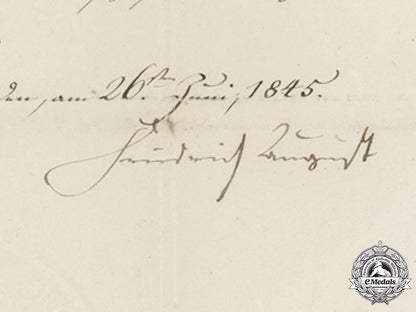 den, am 26.sten Juni, 1845.
Friedrich August
eMedals